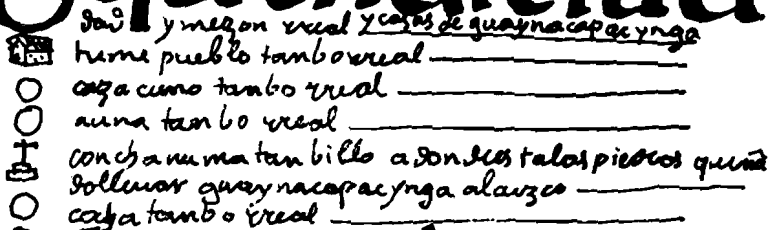 dad y mezon rreal y casas de guaynacapac ynga
tume pueblo tambo rreal
caza cuno tambo rreal
auna tanbo rreal
conchanuma tanbillo adondes talas piedras que mã
dolleuar guaynacapac ynga alcuzco
tambo rreal